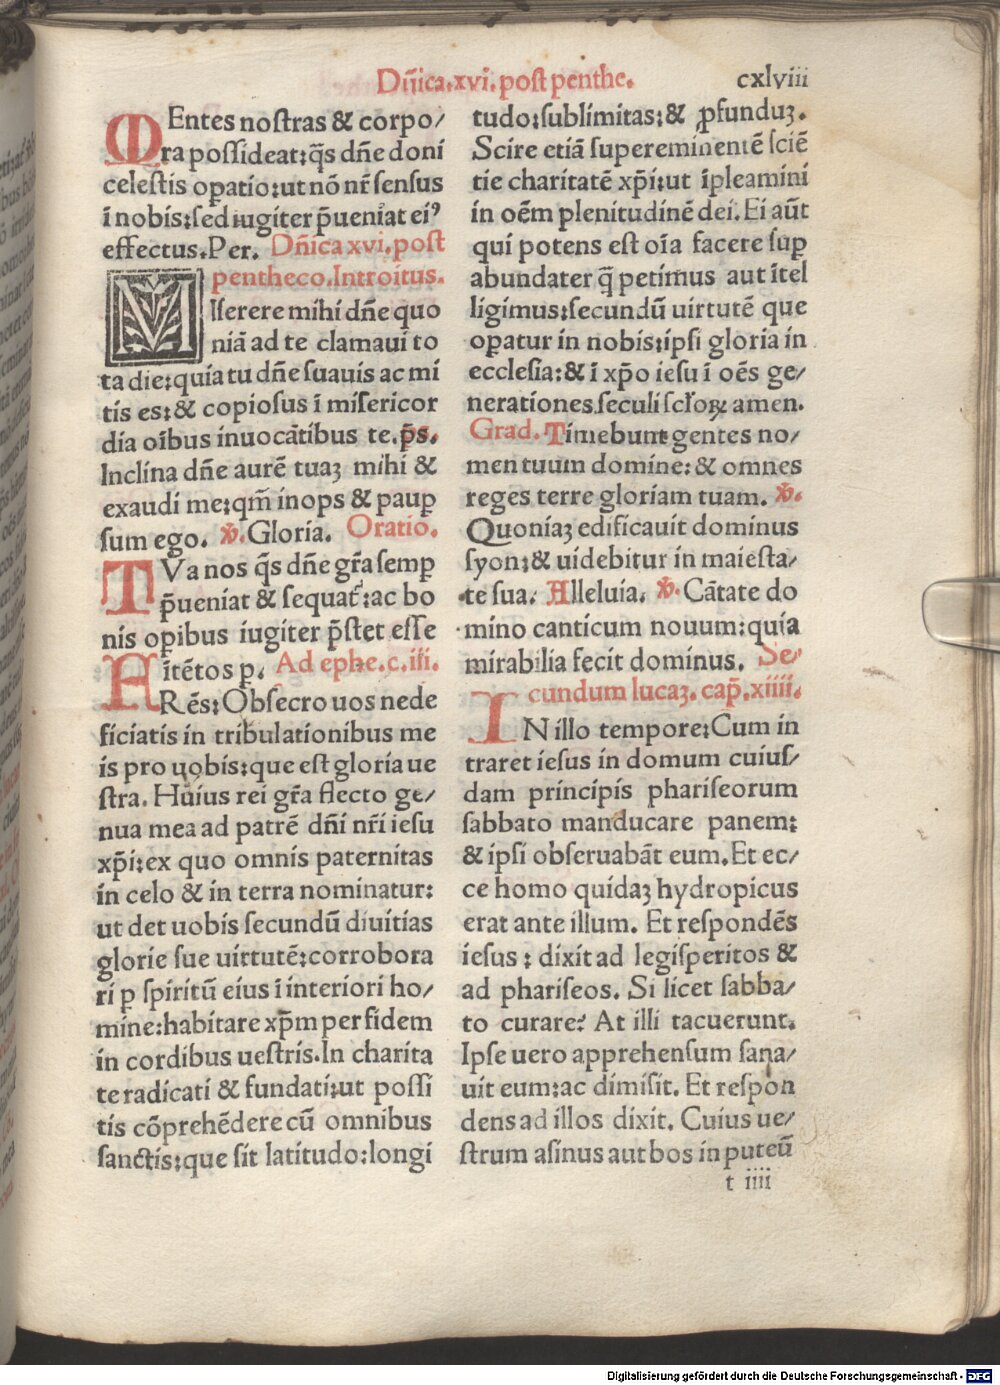 Dñica.xvi.post penthe.
cxlviii
MEntes nostras & corpo/
ra possideat:q̃s dñe doni
celestis oꝑatio:ut nõ nr̃ sensus
ĩ nobis:sed iugiter p̃ueniat eiꝰ
effectus.Per. Dñica xvi.post
pentheco.Introitus.
MIserere mihi dñe quo
niã ad te clamaui to
ta die:quia tu dñe suauis ac mi
tis es:& copiosus ĩ misericor
dia oĩbus inuocãtibus te.p̃s.
Inclina dñe aurẽ tuaꝫ mihi &
exaudi me:qm̃ inops & pauꝑ
sum ego. ꝟ.Gloria. Oratio.
TVa nos q̃s dñe gr̃a semꝑ
p̃ueniat & sequat᷑:ac bo
nis oꝑibus iugiter p̃stet esse
ĩtẽtos ꝑ. Ad ephe.c.iii.
FRẽs:Obsecro uos nede
ficiatis in tribulationibus me
is pro uobis:que est gloria ue
stra. Huius rei gr̃a flecto ge/
nua mea ad patrẽ dñi nr̃i iesu
xp̃i:ex quo omnis paternitas
in celo & in terra nominatur:
ut det uobis secundũ diuitias
glorie sue uirtutẽ:corrobora
ri ꝑ spiritũ eius ĩ interiori ho/
mine:habitare xp̃m per fidem
in cordibus uestris.In charita
te radicati & fundati:ut possi
tis cõprehẽdere cũ omnibus
sanctis:que sit latitudo:longi
tudo:sublimitas:& ꝓfunduꝫ.
Scire etiã supereminentẽ sciẽ
tie charitatẽ xp̃i:ut ĩpleamini
in oẽm plenitudinẽ dei. Ei aũt
qui potens est oĩa facere suꝑ
abundater q̃ petimus aut ĩtel
ligimus:secundũ uirtutẽ que
oꝑatur in nobis:ipsi gloria in
ecclesia:& ĩ xp̃o iesu ĩ oẽs ge/
nerationes seculi scl̃oꝝ amen.
Grad. Timebunt gentes no/
men tuum domine: & omnes
reges terre gloriam tuam. ꝟ.
Quoniaꝫ edificauit dominus
syon:& uidebitur in maiesta/
te sua. Alleluia. ꝟ. Cãtate do
mino canticum nouum:quia
mirabilia fecit dominus. Se/
cundum lucaꝫ. cap̃.xiiii.
IN illo tempore:Cum in
traret iesus in domum cuius/
dam principis phariseorum
sabbato manducare panem:
& ipsi obseruabãt eum.Et ec/
ce homo quidaꝫ hydropicus
erat ante illum. Et respondẽs
iesus : dixit ad legisperitos &
ad phariseos. Si licet sabba/
to curare? At illi tacuerunt.
Ipse uero apprehensum sana/
uit eum:ac dimisit. Et respon
dens ad illos dixit. Cuius ue/
strum asinus aut bos in puteũ
t iiii
Digitalisierung gefördert durch die Deutsche Forschungsgemeinschaft - DFG